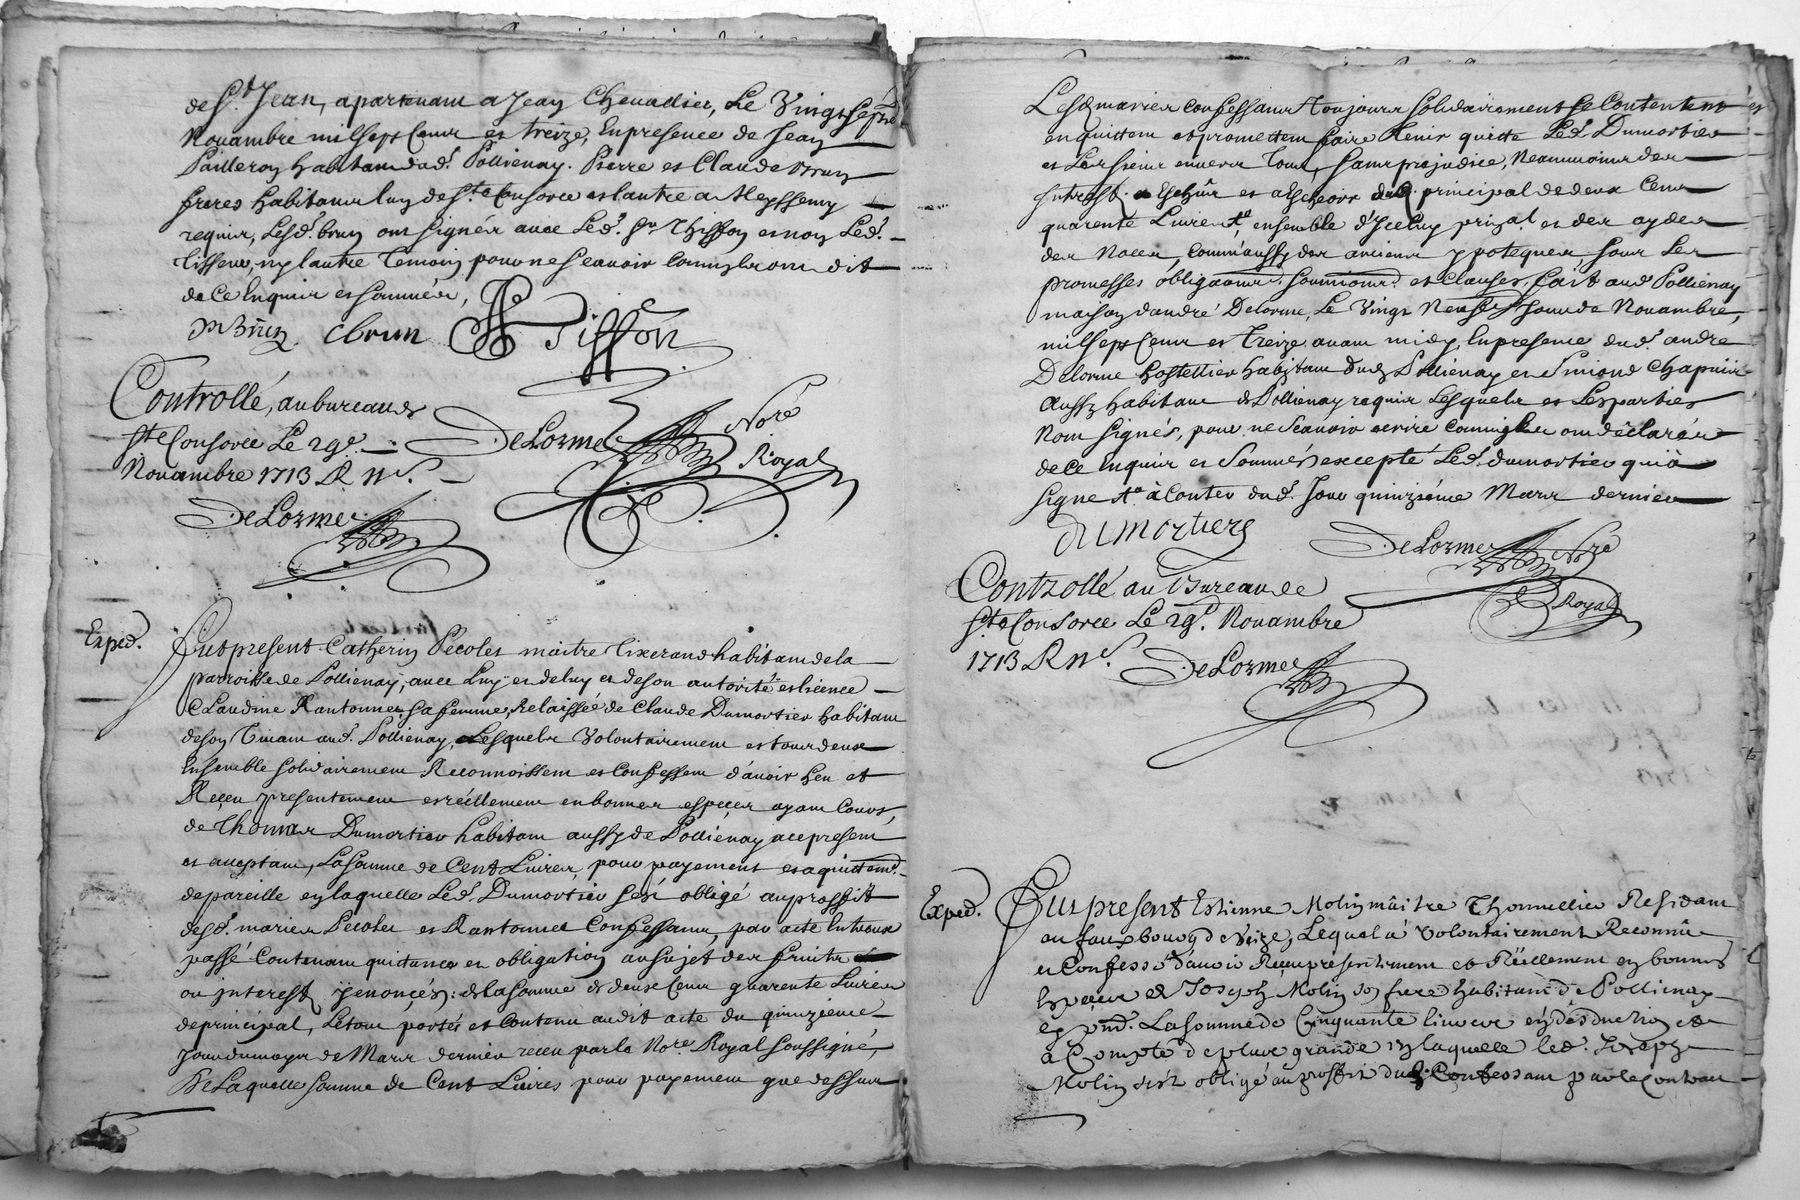 de St Jean, apartenant a Jean Chevallier, Le Vingt septe
Novambre mil sept Cent et treize, En presence de Jean
Pailleron habitant dud. Pollienay. Pierre et Claude brun
freres habitant luy de ste Consorce et lautre a Meyssemy
requis, Lesd. brun ont signés avec Led. Sr Thiffon et non Led.
Tisseur, ny lautre Temoin pour ne scavoir Comm'ils ont dit
de Ce Enquis et sommés,
P Brun Cbrun Tiffon
Controllé, au bureau de
ste Consorce Le 29e
Novambre 1713 R ns.
DeLorme Nore Royal
DeLorme
Exped.
Fut present Catherin Pecolet maitre Tixerand habitant de la
parroisse de Pollienay, avec Luy et de luy et de son autorité et licence
Claudine Rantonnet, sa femme, Relaissée de Claude Dumortier habitant
de son Vivant aud. Pollienay, Lesquels Volontairement et tous deux
Ensemble solidairement Reconnoissent et Confessent d'avoir heu et
Reçeu presentement et réellement en bonnes espeçes ayant Cours,
de Thomas Dumortier habitant aussy de Pollienay ace present
et aceptant, La somme de Cent Livres, pour payement et aquittemt.
de pareille en laquelle Led. Dumortier sest obligé au proffit
desd. mariés Pecolet et Rantonnet Confessants, par acte Entreux
passé Contenant quittance et obligation au sujet des fruits
ou interest y enonçés: de la somme de deux Cent quarente Livres
de principal, Le tout portés et Contenu audit acte du quinzieme
Jour du moys de Mars dernier receu par le Nore. Royal soussigné,
De Laquelle somme de Cent Livres pour payement que dessus
Lesd mariés Confessants Toujours solidairement se Contentent et
en quittent et promettent faire Tenir quitte Led. Dumortier
et Les siens envers Tous, sans prejudice, Neanmoins des
Interest. a Escheus et a Escheoir dud. principal de deux Cent
quarente Livres, ensemble d'Iceluy prinal. et des aydes
des Noces, Comm'aussy des anciens ypoteques sous Les
promesses obligaons. soumions. et Clauses, fait aud Pollienay
maison d'andré Delorme, Le Vingt Neufe Jour de Novambre,
mil sept Cent et Treize avant midy, En presence dud. andré
Delorme hostellier habitant dud Pollienay et Simond Chapuis
aussy habitant de Pollienay requis Lesquels et Les parties
Nont signés, pour ne Scavoir ecrire Comm'ils ont déclarés
de Ce Enquis et Sommés excepté Led. dumortier qui a
signé a Conter dud. Jour quinzième Mars dernier
dumortiers
DeLorme Nore Royal
Controllé au Bureau de
ste Consorce Le 29e. Novambre
1713 R ns.
DeLorme
Exped.
Fut present Estienne Molin maitre Thonnellier Residant
au faux bourg de Veize, Lequel a Volontairement Reconnu
et Confessé d'avoir Reçeu présentement et Réellement en bonnes
Espèces de Joseph Molin son frere habitant de Pollienay
cy pnt. La somme de Cinquante livres en deduction et
a Compte de plus grande en laquelle led. Joseph
Molin s'est obligé au proffit dud. Confessant par le Contract